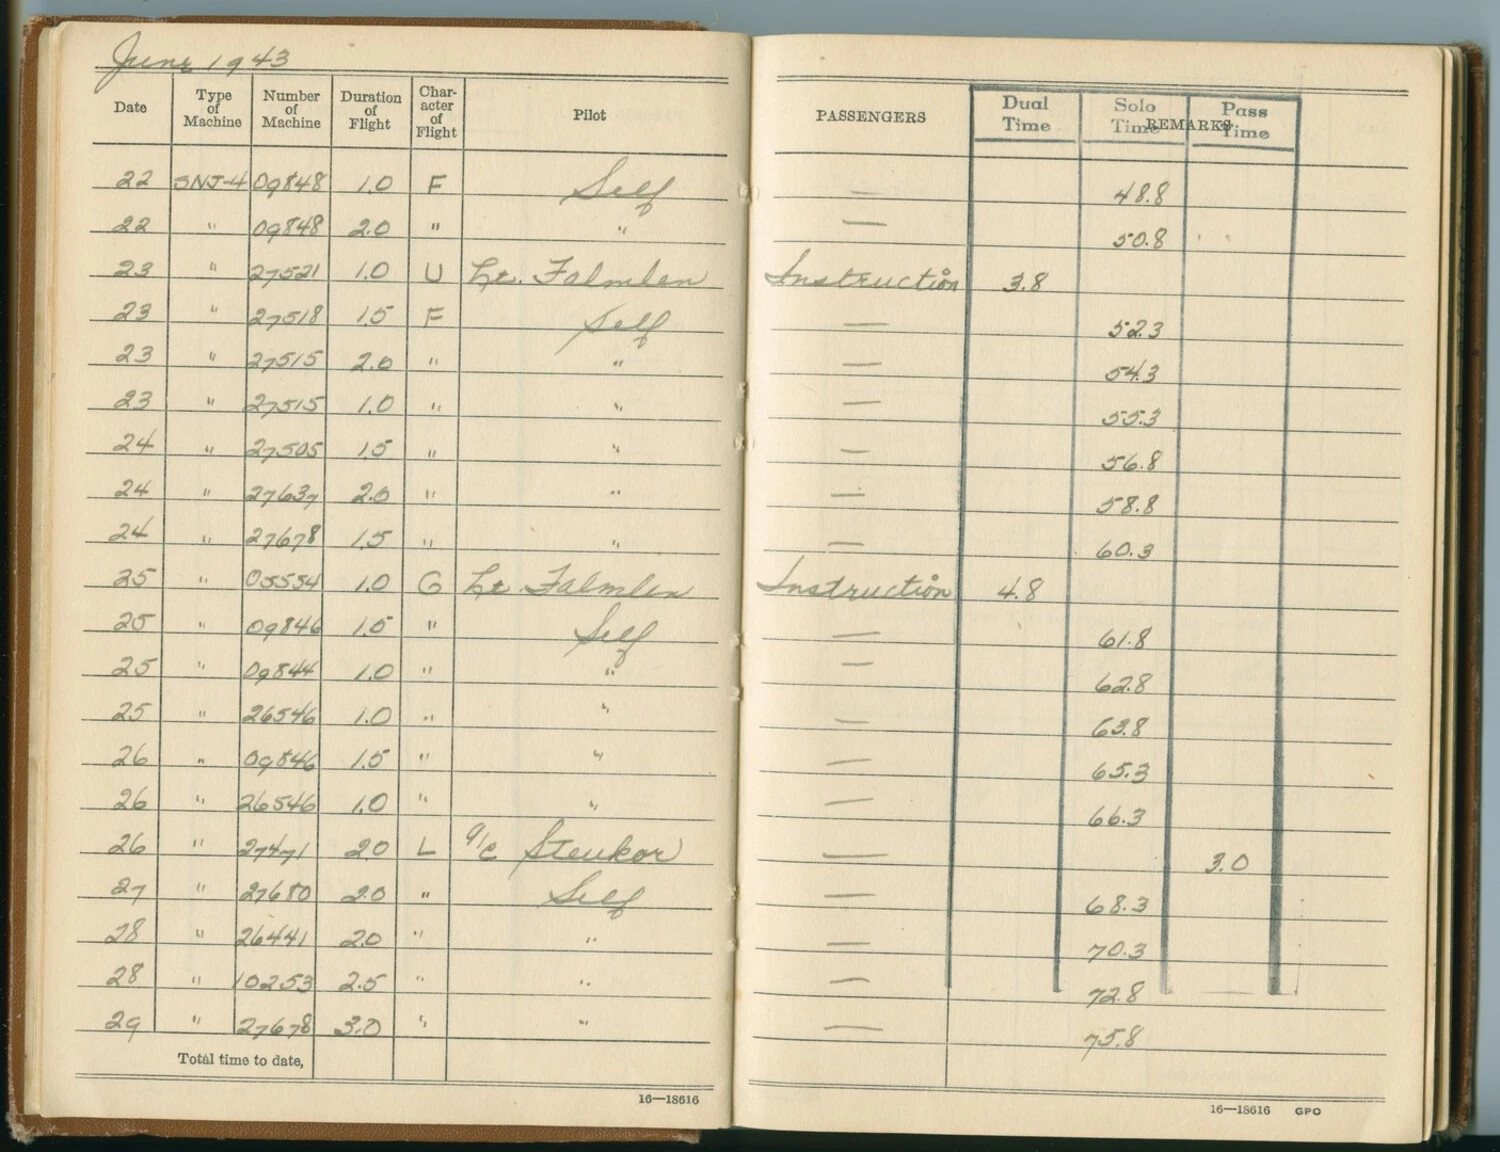 June 1943
Date Type of Machine Number of Machine Duration of Flight Character of Flight Pilot PASSENGERS Dual Time Solo Time Pass Time REMARKS
22 SNJ-4 09848 1.0 F Self — 48.8
22 " 09848 2.0 " " — 50.8
23 " 27521 1.0 U Lt. Falmlen Instruction 3.8
23 " 27518 1.5 F Self — 52.3
23 " 27515 2.0 " " — 54.3
23 " 27515 1.0 " " — 55.3
24 " 27505 1.5 " " — 56.8
24 " 27637 2.0 " " — 58.8
24 " 27678 1.5 " " — 60.3
25 " 05554 1.0 G Lt. Falmlen Instruction 4.8
25 " 09846 1.5 " Self — 61.8
25 " 09844 1.0 " " — 62.8
25 " 26546 1.0 " " — 63.8
26 " 09846 1.5 " " — 65.3
26 " 26546 1.0 " " — 66.3
26 " 27471 2.0 L A/C Steukor — 3.0
27 " 27680 2.0 " Self — 68.3
28 " 26441 2.0 " " — 70.3
28 " 10253 2.5 " " — 72.8
29 " 27678 3.0 " " — 75.8
Total time to date,
16—18616
16—18616 GPO